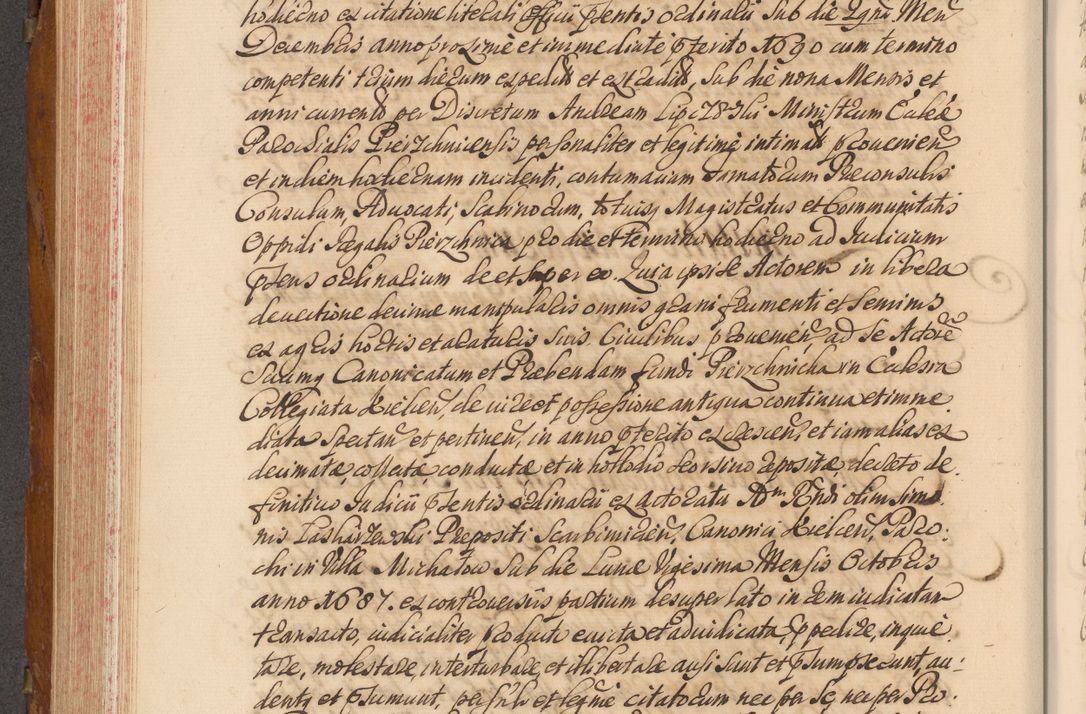 hodierno ex citatione literali officii pntis ordinarii sub die Ignñ Men
Decembris anno proxime et immediate pterito 1690 cum termino
competenti trium dierum expedit et extradit, sub die nona Mensis et
anni currentis per Discretum Andream Ministrum Ecclae
Parochialis Pierzchnicensis personaliter et legitime intimat provenien
et in diem hodiernam incidenti, contumaciam famatorum Preconsulis
Consulum, Advocati, Scabinorum, totiusq Magistratus et Communitatis
Oppidi Regalis Pierzchnica pro die et termino hodierno ad Iudicium
psens ordinarium de et super eo. Quia ipsi se Actorem in libera
devectione decimae manipularis omnis grani frumenti et seminis
ex agris hortis et araturis suis Civilibus provenien, ad se Actorē
suumq Canonicatum et Praebendam fundi Pierzchnicka in Ecclesia
Collegiata Kielcen, de iure et possessione antiqua continua et imme
diata spectan et pertinen, in anno pterito excrescen, et iam alias ex
decimatae, collectae, conductae et in horreo seorsino repositae, decreto de
finitivo Iudicii pntis ordinarii ex actoratu Adm Rndi olim Simo
nis Praepositi Scarbimirien, Canonici Kielcen, Paro:
chi in Villa Michałow sub die Lunae Vigesima Mensis Octobris
anno 1687. ex controversiis partium desuper lato in rem iudicatam
transacto, iudicialiter producto evicta et adiudicata, impedire, inquie
tare, molestare, interturbare et illibertare ausi sunt et psumpserunt, au:
dentq et psumunt, per se et legitime citatorum nec per se nec per Pro: